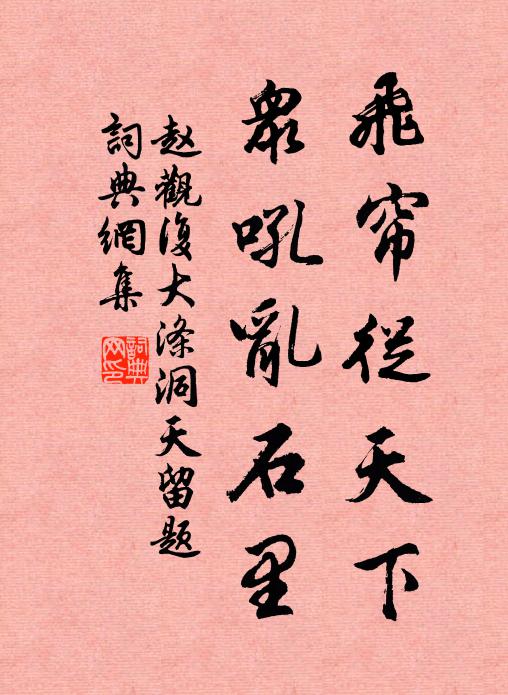 飛帘從天下
眾吼亂石里
赵觀復大滌洞天留题
詞典網集
詞典
网印